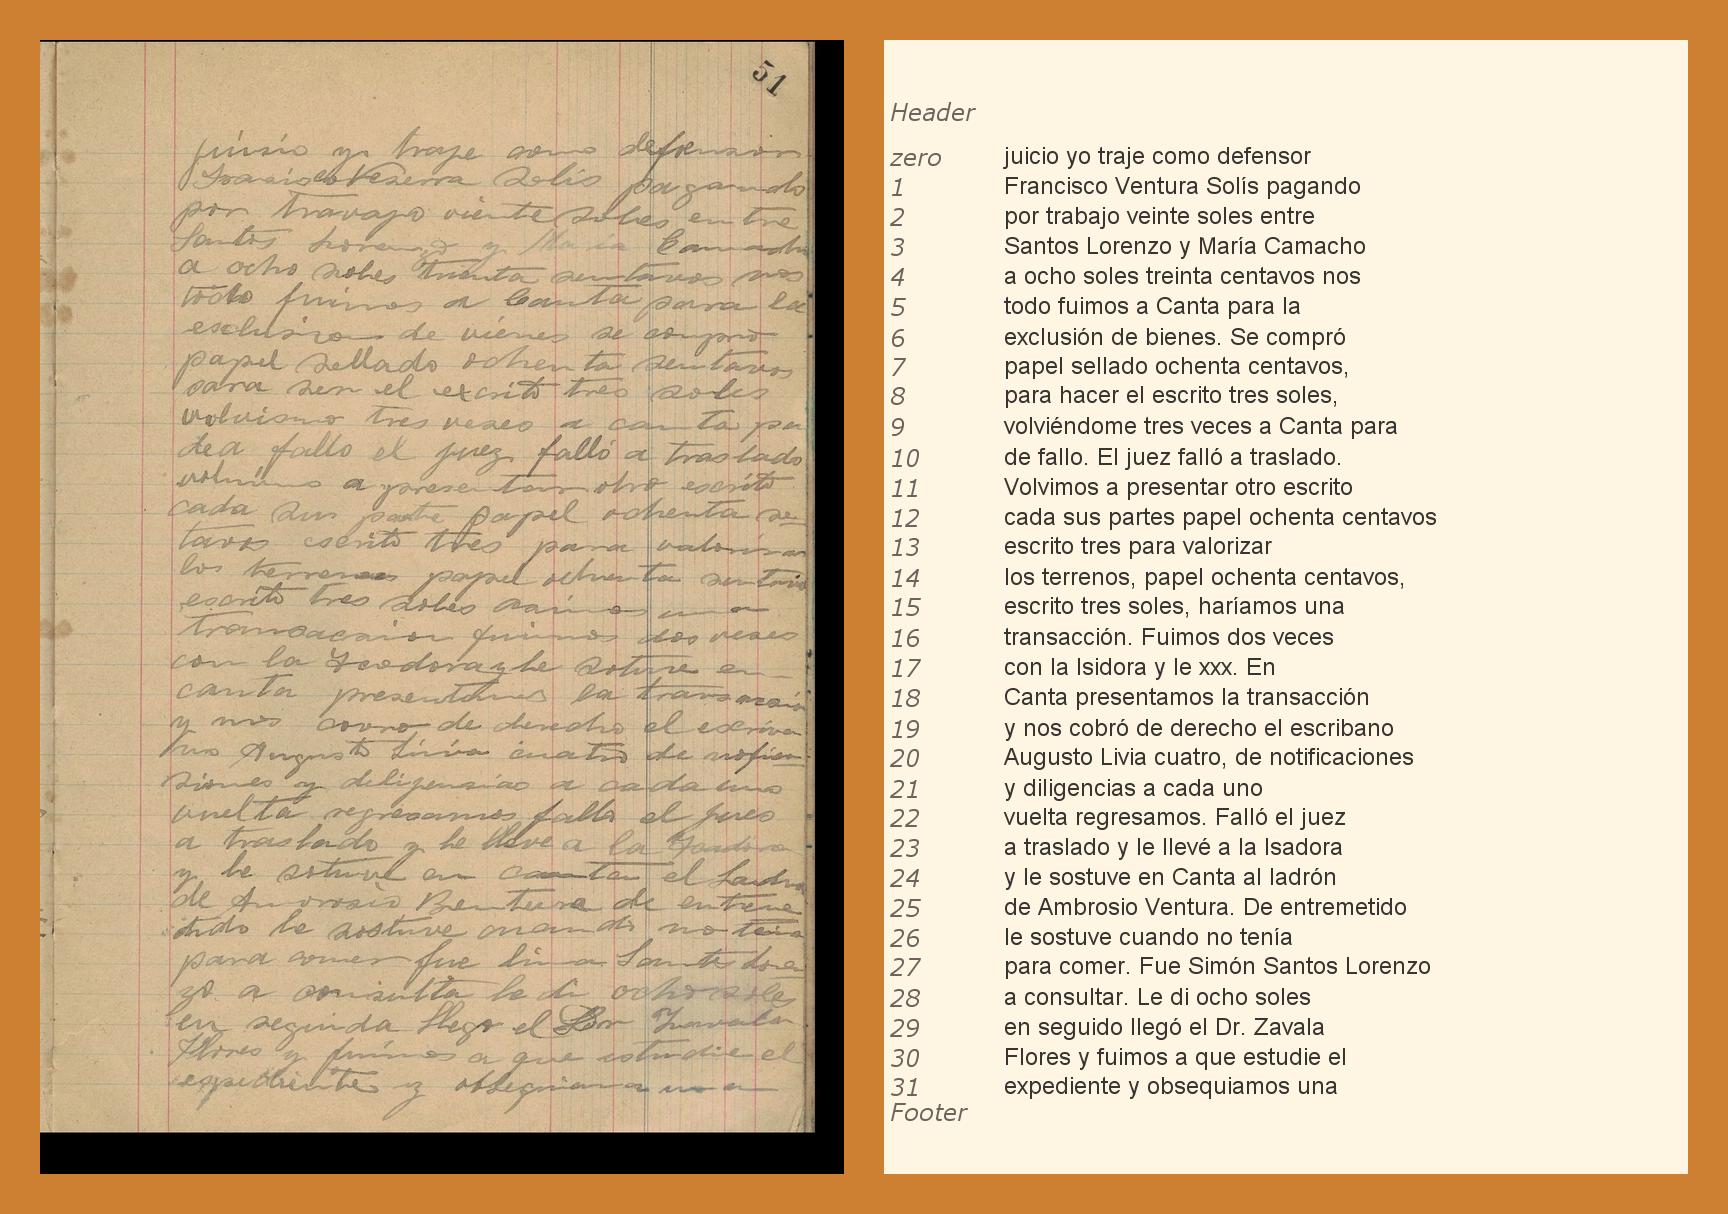 51
juisio yo traje como defensor
Fransisco Veserra Solis pagando
por travajo viente soles entre
Santos Lorenzo y María Camacho
a ocho soles trenta sentavos nos
todo fuimos a Canta para la
esclusion de vienes se compro
papel sellado ochenta sentavos
para ser el escrito tres soles
volvismo tres veses a canta pa
dea fallo el juez falló a traslado
volvimo a presentar otro escrito
cada sus parte papel ochenta se
tavos escrito tres para valorizar
los terrenos papel ochenta sentavos
escrito tres soles una
fuimos dos veses
con la y le sotuve en
canta presentamos la
y nos covro de derecho el escriva
no Augusto Livia cuatro de
siones y delijensias a cada uno
vuelta regresamos falló el jues
a traslado y le lleve a la
y le sotuve en canta el
de Amvrosio Bentura de entreme
tido le sostuve cuando no tenia
para comer fue Santos Loren
zo a consulta le di ocho soles
en seguida llego el Dor Zavala
Flores y fuimos a que estudie el
espediente y obsequiamos una
Header
zero juicio yo traje como defensor
1 Francisco Ventura Solís pagando
2 por trabajo veinte soles entre
3 Santos Lorenzo y María Camacho
4 a ocho soles treinta centavos nos
5 todo fuimos a Canta para la
6 exclusión de bienes. Se compró
7 papel sellado ochenta centavos,
8 para hacer el escrito tres soles,
9 volviéndome tres veces a Canta para
10 de fallo. El juez falló a traslado.
11 Volvimos a presentar otro escrito
12 cada sus partes papel ochenta centavos
13 escrito tres para valorizar
14 los terrenos, papel ochenta centavos,
15 escrito tres soles, haríamos una
16 transacción. Fuimos dos veces
17 con la Isidora y le xxx. En
18 Canta presentamos la transacción
19 y nos cobró de derecho el escribano
20 Augusto Livia cuatro, de notificaciones
21 y diligencias a cada uno
22 vuelta regresamos. Falló el juez
23 a traslado y le llevé a la Isadora
24 y le sostuve en Canta al ladrón
25 de Ambrosio Ventura. De entremetido
26 le sostuve cuando no tenía
27 para comer. Fue Simón Santos Lorenzo
28 a consultar. Le di ocho soles
29 en seguido llegó el Dr. Zavala
30 Flores y fuimos a que estudie el
31 expediente y obsequiamos una
Footer